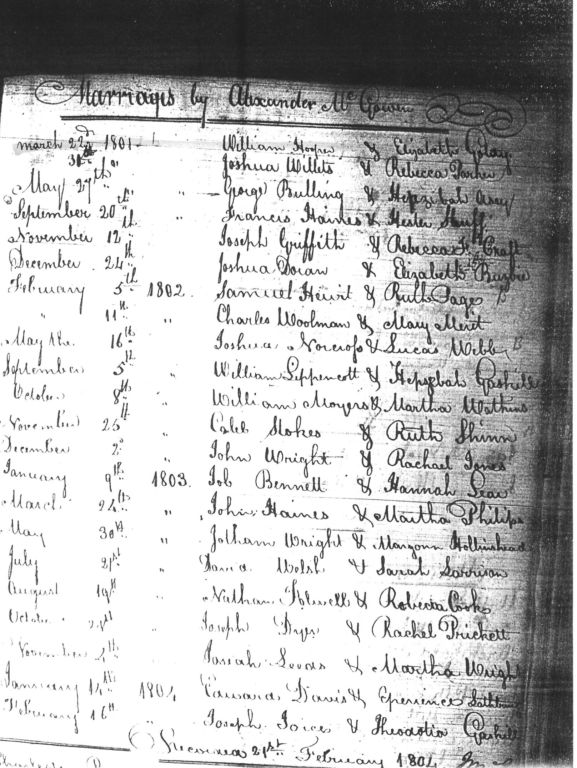 Marriages by Alexander Mc Gowen
march 22d 1801 William Hooper & Elizabeth
31st " Joshua Willets & Rebecca Parker
May 27th " George Bulling & Hepzebah
September 20th " Francis Haines & Hester Huff
November 12th Joseph Griffith & Rebecca Craft
December 24th Joshua Doran & Elizabeth
February 5th 1802. Samuel Hewit & Ruth Page
" 11th " Charles Woolman & Mary Merit
May the 16th " Joshua Norcross & Lucas Webb
September 5th " William Lippencott & Hepzebah Gaskill
October 8th " William Moyers & Martha Watkins
November 25th " Caleb Stokes & Ruth Shinn
December 2d " John Wright & Rachael Jones
January 9th 1803. Job Bennett & Hannah
March 24th " John Haines & Martha Philips
May 30th " Jotham Wright & Hollinshead
July 21st " Welsh & Sarah Garrison
August 19th " Nathan & Cooke
October " Joseph & Rachel Prickett
November Josiah & Martha Wright
January 14th 1804 Davis &
February 16th " Joseph & Theodotia Gaskill
Recorded 21st February 1804